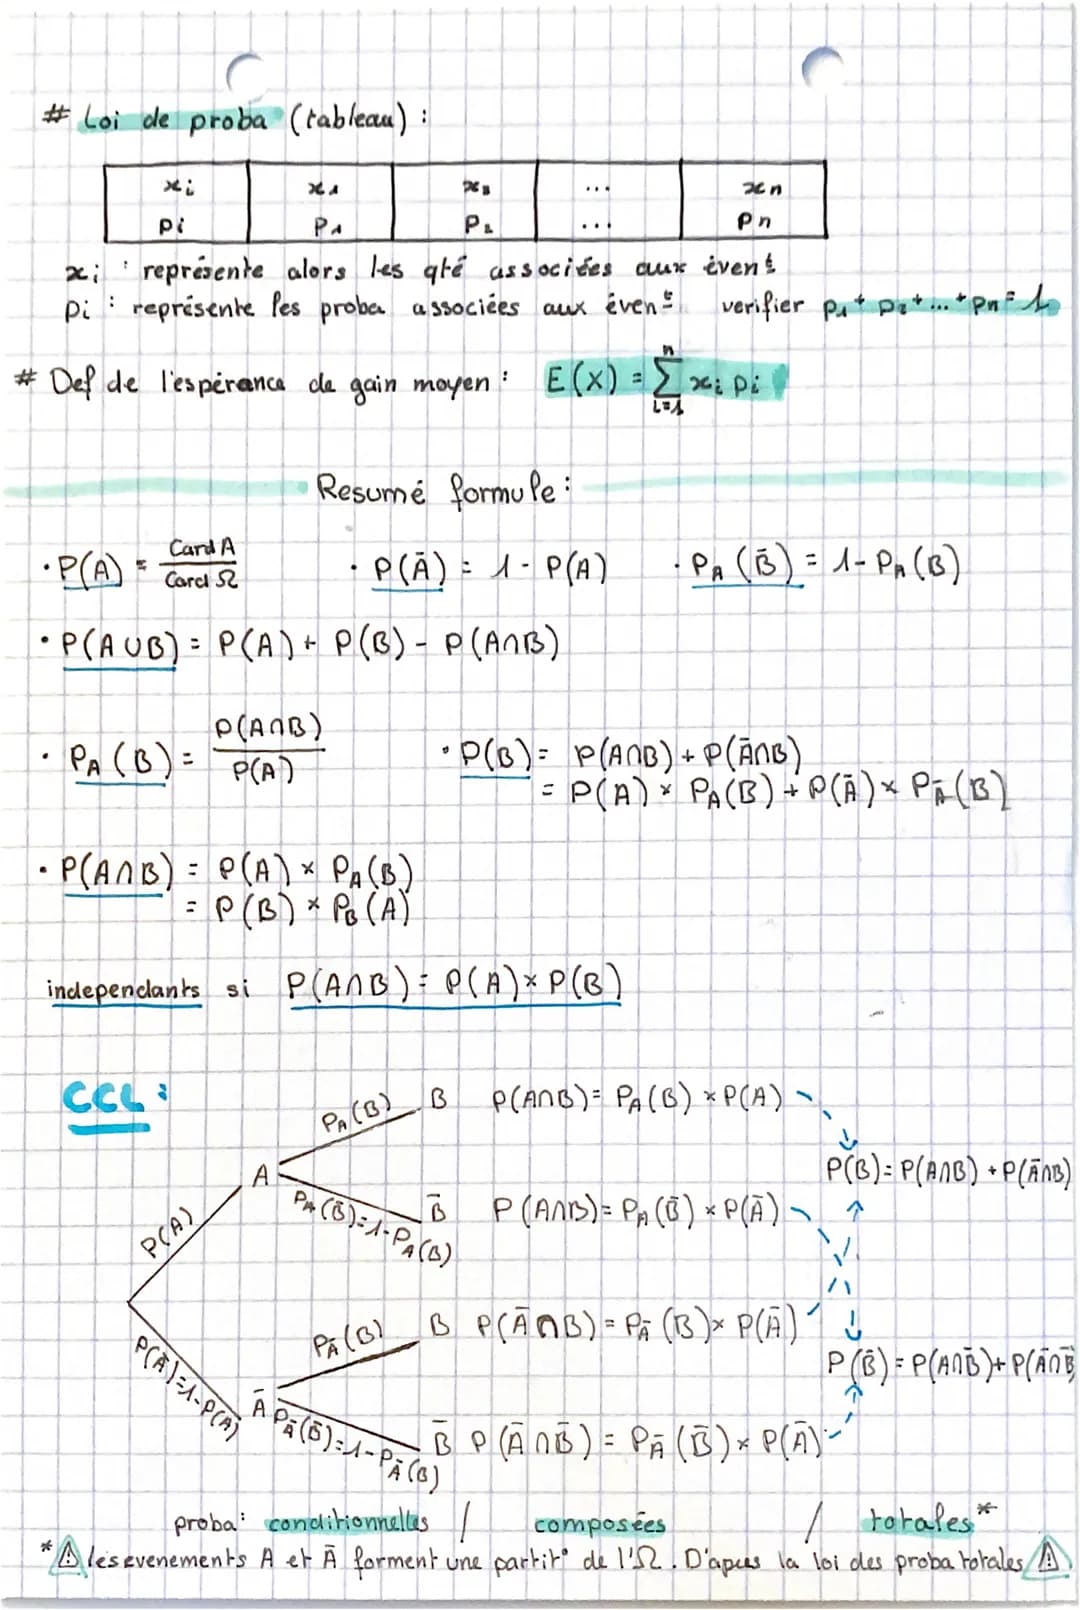 # Loi de proba (tableau) :
xi x1 x2 ... xn
pi P1 P2 ... Pn
xi : représente alors les qté associées aux évents
pi : représente les proba associées aux évents verifier p1 + p2 + ... + pn = 1
# Def de l'espérance de gain moyen : E(x) = ∑ⁿᵢ₌₁ xi pi
Resumé formule :
· P(A) = Card A / Card Ω · P(Ā) = 1 - P(A) · PA(B̄) = 1 - PA(B)
· P(A∪B) = P(A) + P(B) - P(A∩B)
· PA(B) = P(A∩B) / P(A) · P(B) = P(A∩B) + P(Ā∩B)
= P(A) × PA(B) + P(Ā) × PĀ(B)
· P(A∩B) = P(A) × PA(B)
= P(B) × PB(A)
independants si P(A∩B) = P(A) × P(B)
CCL :
PA(B) B P(A∩B) = PA(B) × P(A)
A
P(B) = P(A∩B) + P(Ā∩B)
P(A)
PA(B̄) = 1 - PA(B) B̄ P(A∩B) = PA(B̄) × P(Ā)
PĀ(B) B P(Ā∩B) = PĀ(B) × P(Ā)
P(Ā) = 1 - P(A)
P(B̄) = P(A∩B̄) + P(Ā∩B̄
Ā
PĀ(B̄) = 1 - PĀ(B) B̄ P(Ā∩B̄) = PĀ(B̄) × P(Ā)
proba : conditionnelles / composées / totales*
* ⚠ les evenements A et Ā forment une partit° de l'Ω. D'apres la loi des proba totales ⚠